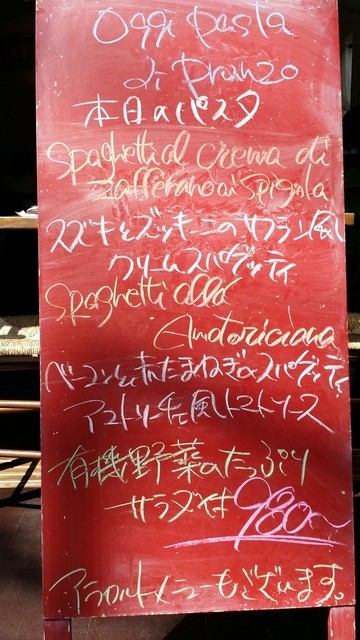 Oggi pasta
di pranzo
本日のパスタ
Spaghetti al crema di
zafferano ai spigola
スズキとズッキーニのサフラン風
クリームスパゲッティ
Spaghetti alla
Amatriciana
ベーコンと赤たまねぎのスパゲッティ
アマトリチャーナ風トマトソース
有機野菜のたっぷり
サラダ付 980~
アラカルトメニューもございます。